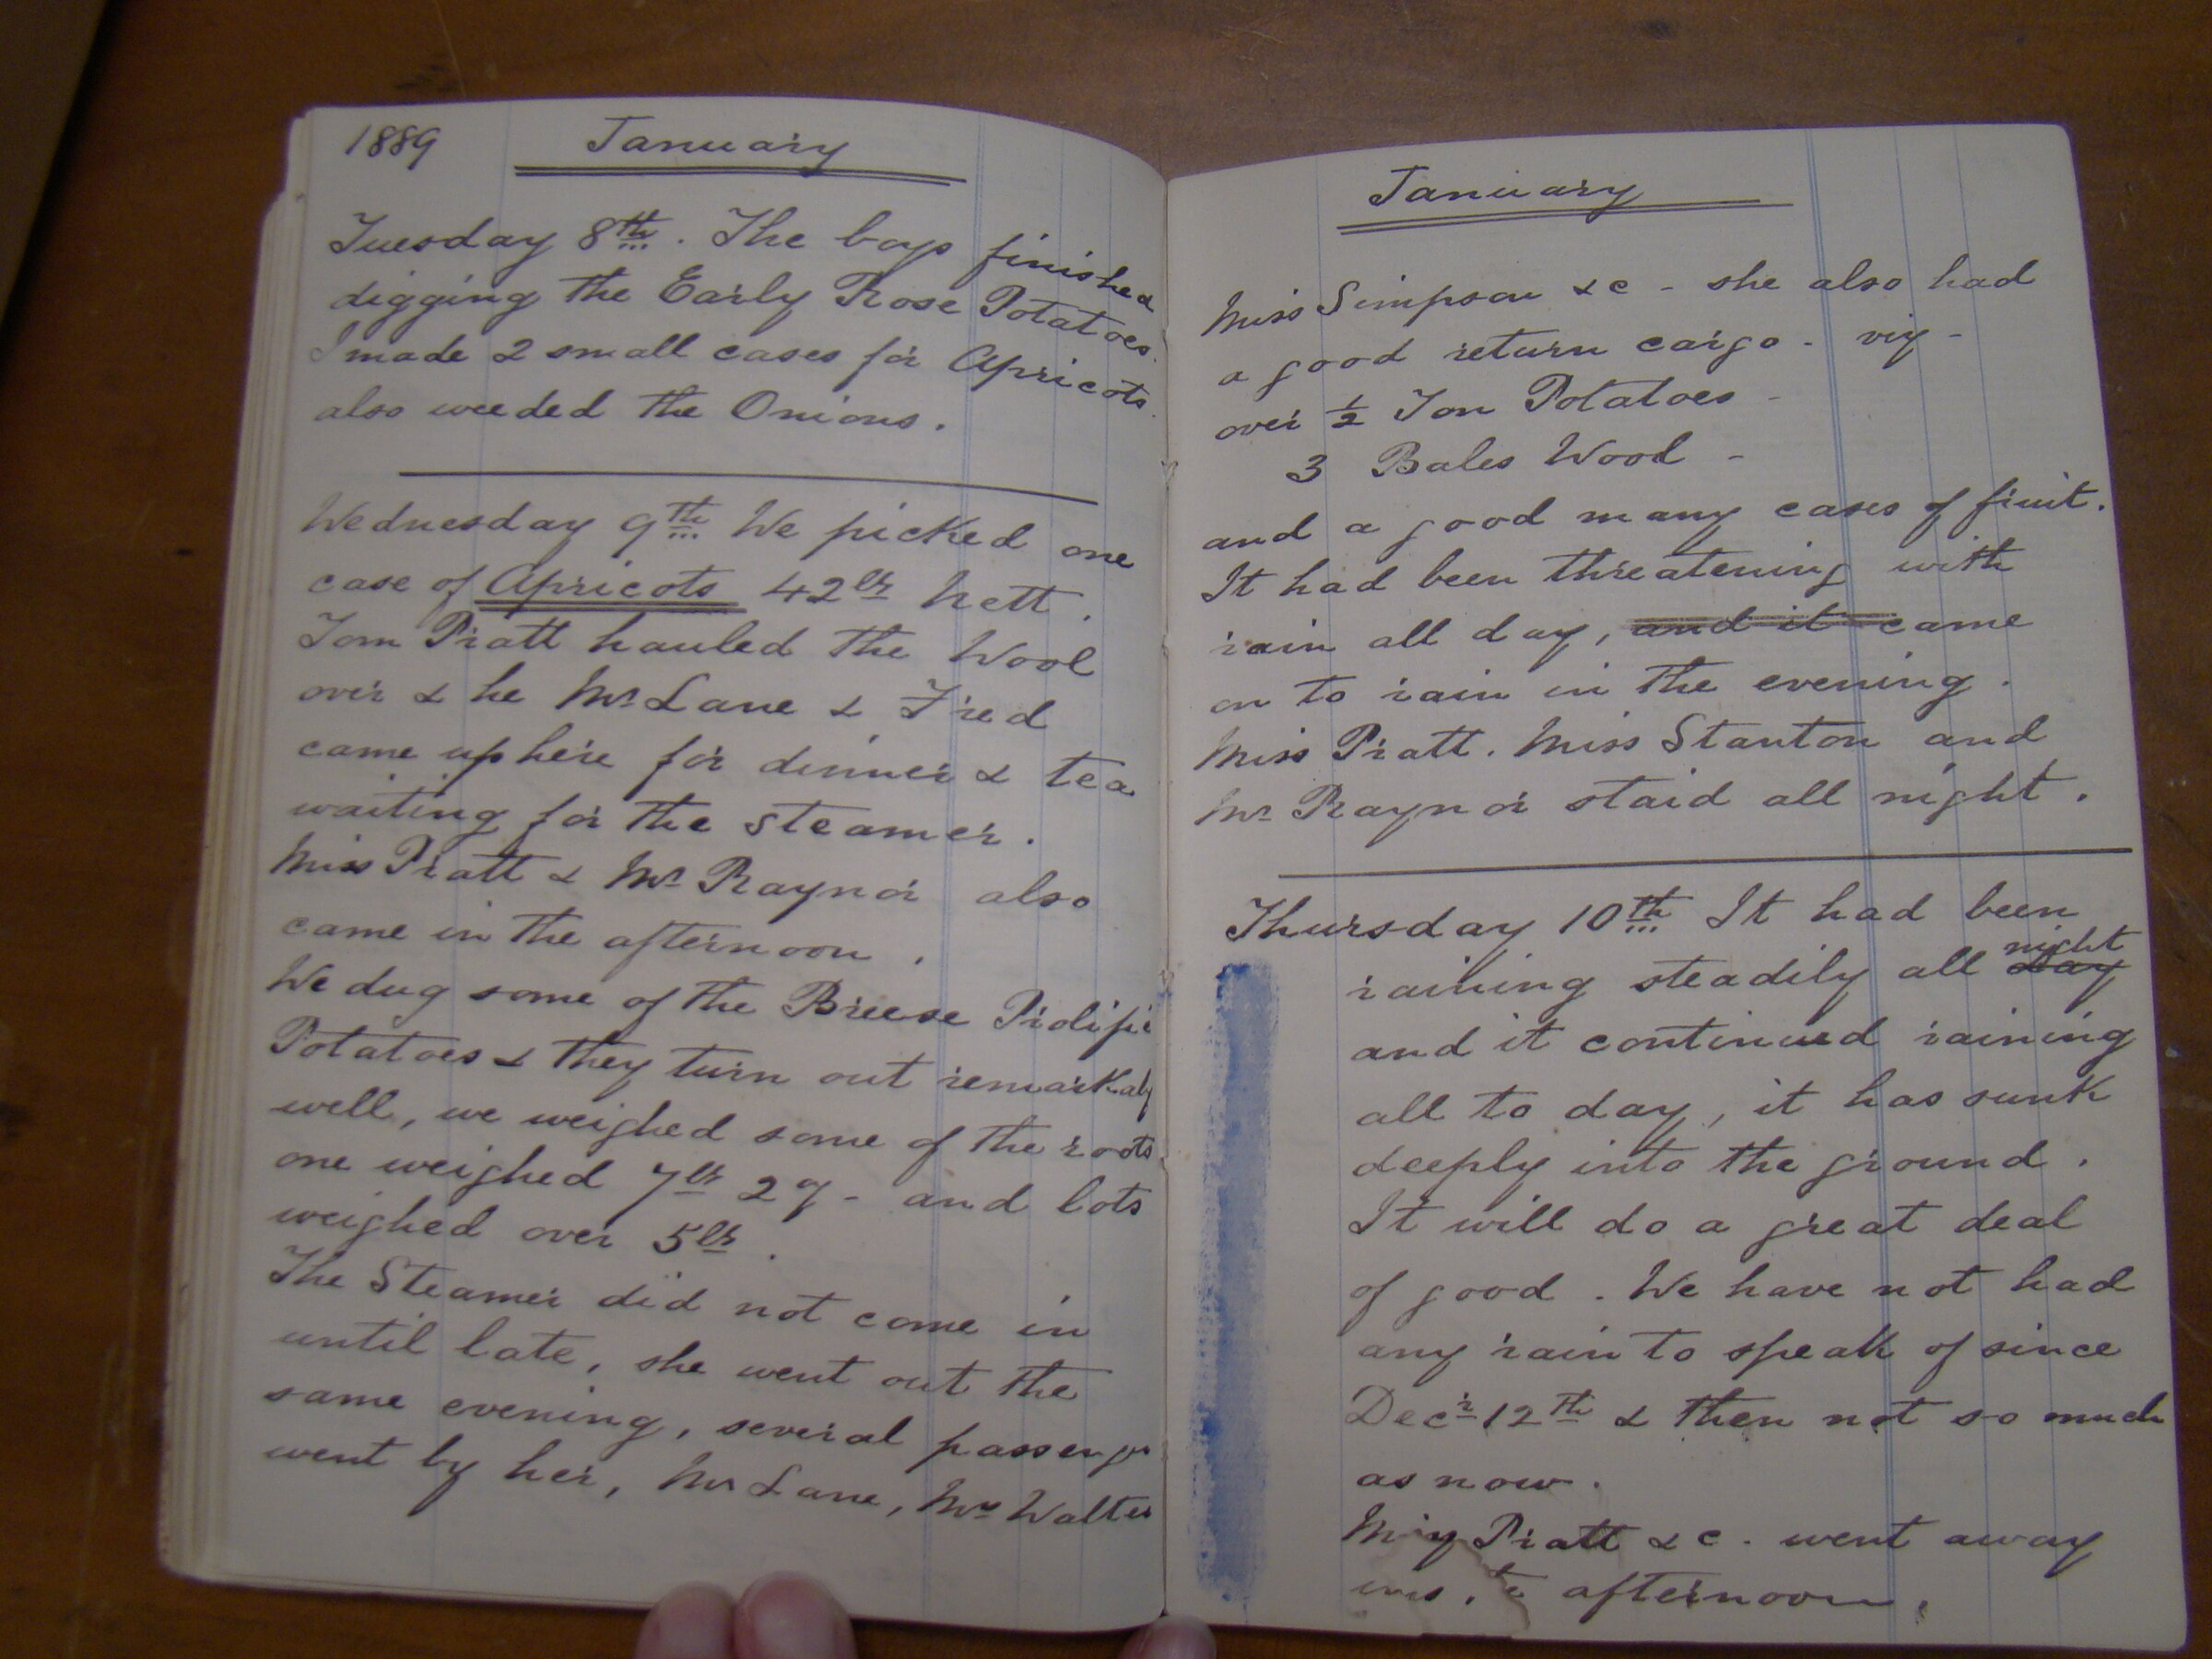 1889 January
Tuesday 8th. The boys finished
digging the Early Rose Potatoes.
I made 2 small cases for Apricots.
also weeded the Onions.
Wednesday 9th We picked one
case of Apricots 42lbs nett.
Tom Pratt hauled the Wool
over & he Mr Lane & Fred
came up here for dinner & tea
waiting for the steamer.
Miss Pratt & Mr Raynor also
came in the afternoon.
We dug some of the Breese Prolific
Potatoes & they turn out remarkaly
well, we weighed some of the roots
one weighed 7lb 2oz - and lots
weighed over 5lbs.
The Steamer did not come in
until late, she went out the
same evening, several passengrs
went by her, Mr Lane, Mrs Walter
January
Miss Simpson &c - she also had
a good return cargo - viz -
over ½ Ton Potatoes -
3 Bales Wool -
and a good many cases of fruit.
It had been threatening with
rain all day, and it came
on to rain in the evening.
Miss Pratt. Miss Stanton and
Mr Raynor staid all night.
Thursday 10th It had been
night
raining steadily all day
and it continued raining
all to day, it has sunk
deeply into the ground.
It will do a great deal
of good. We have not had
any rain to speak of since
Decr 12th & then not so much
as now.
Pratt &c. went away
afternoon.